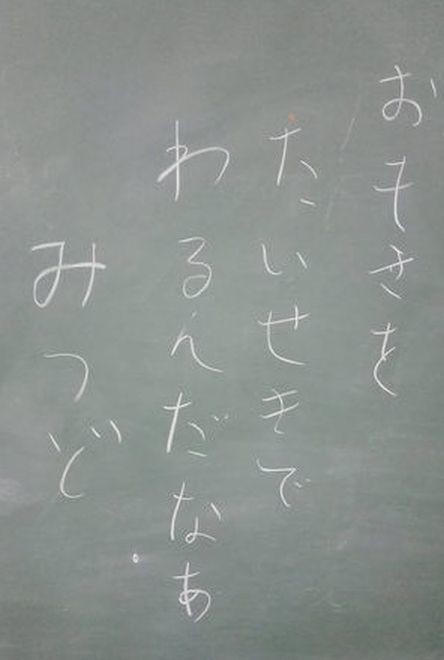 おもさを
たいせきで
わるんだなぁ
みつど